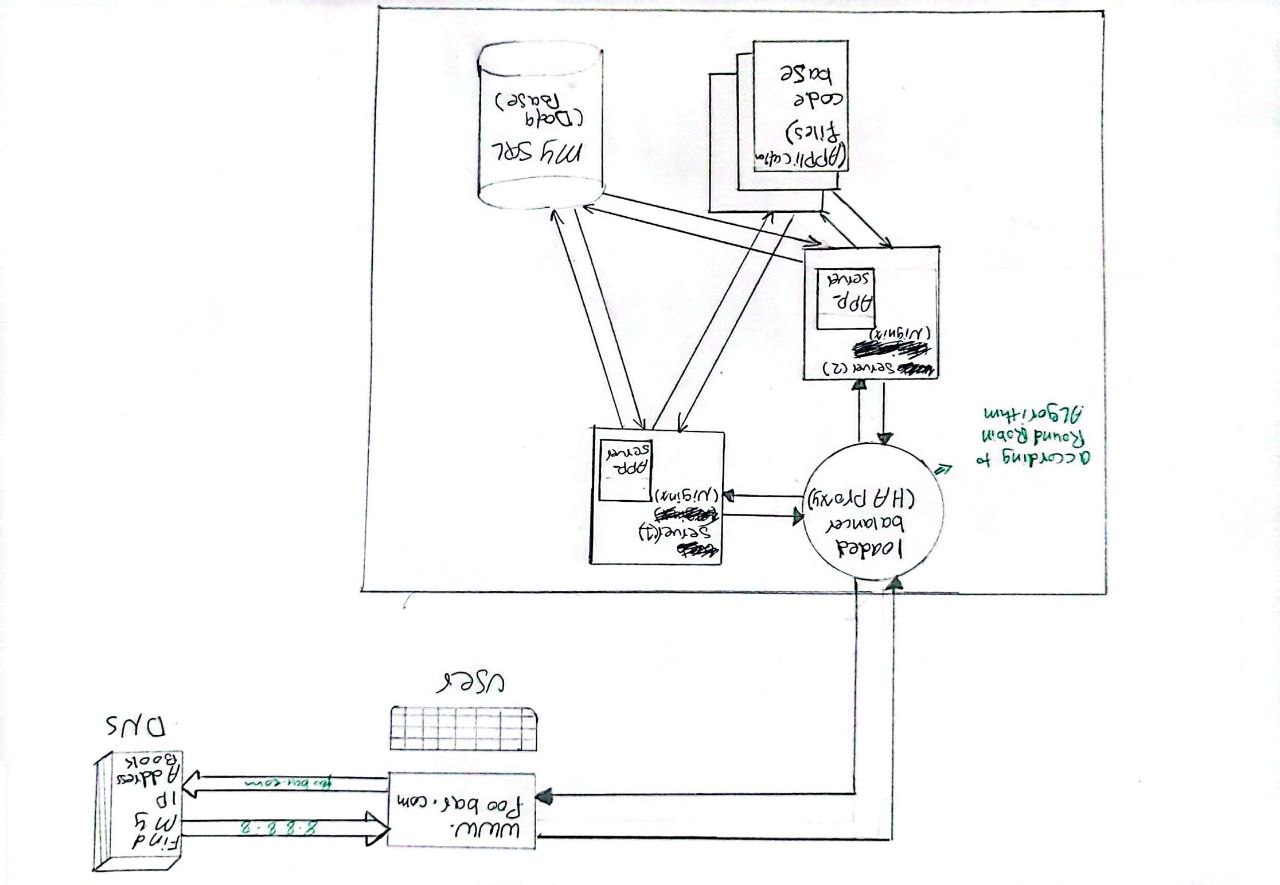 www.
foobar.com
8.8.8.8
foobar.com
Find
My
IP
Address
Book
DNS
user
loaded
balancer
(HA Proxy)
according to
Round Robin
ALgorithm
server(1)
(Niginx)
APP-
server
server(2)
(Nignix)
APP-
server
(APPlication
files)
code
base
MY SQL
(Data
Base)